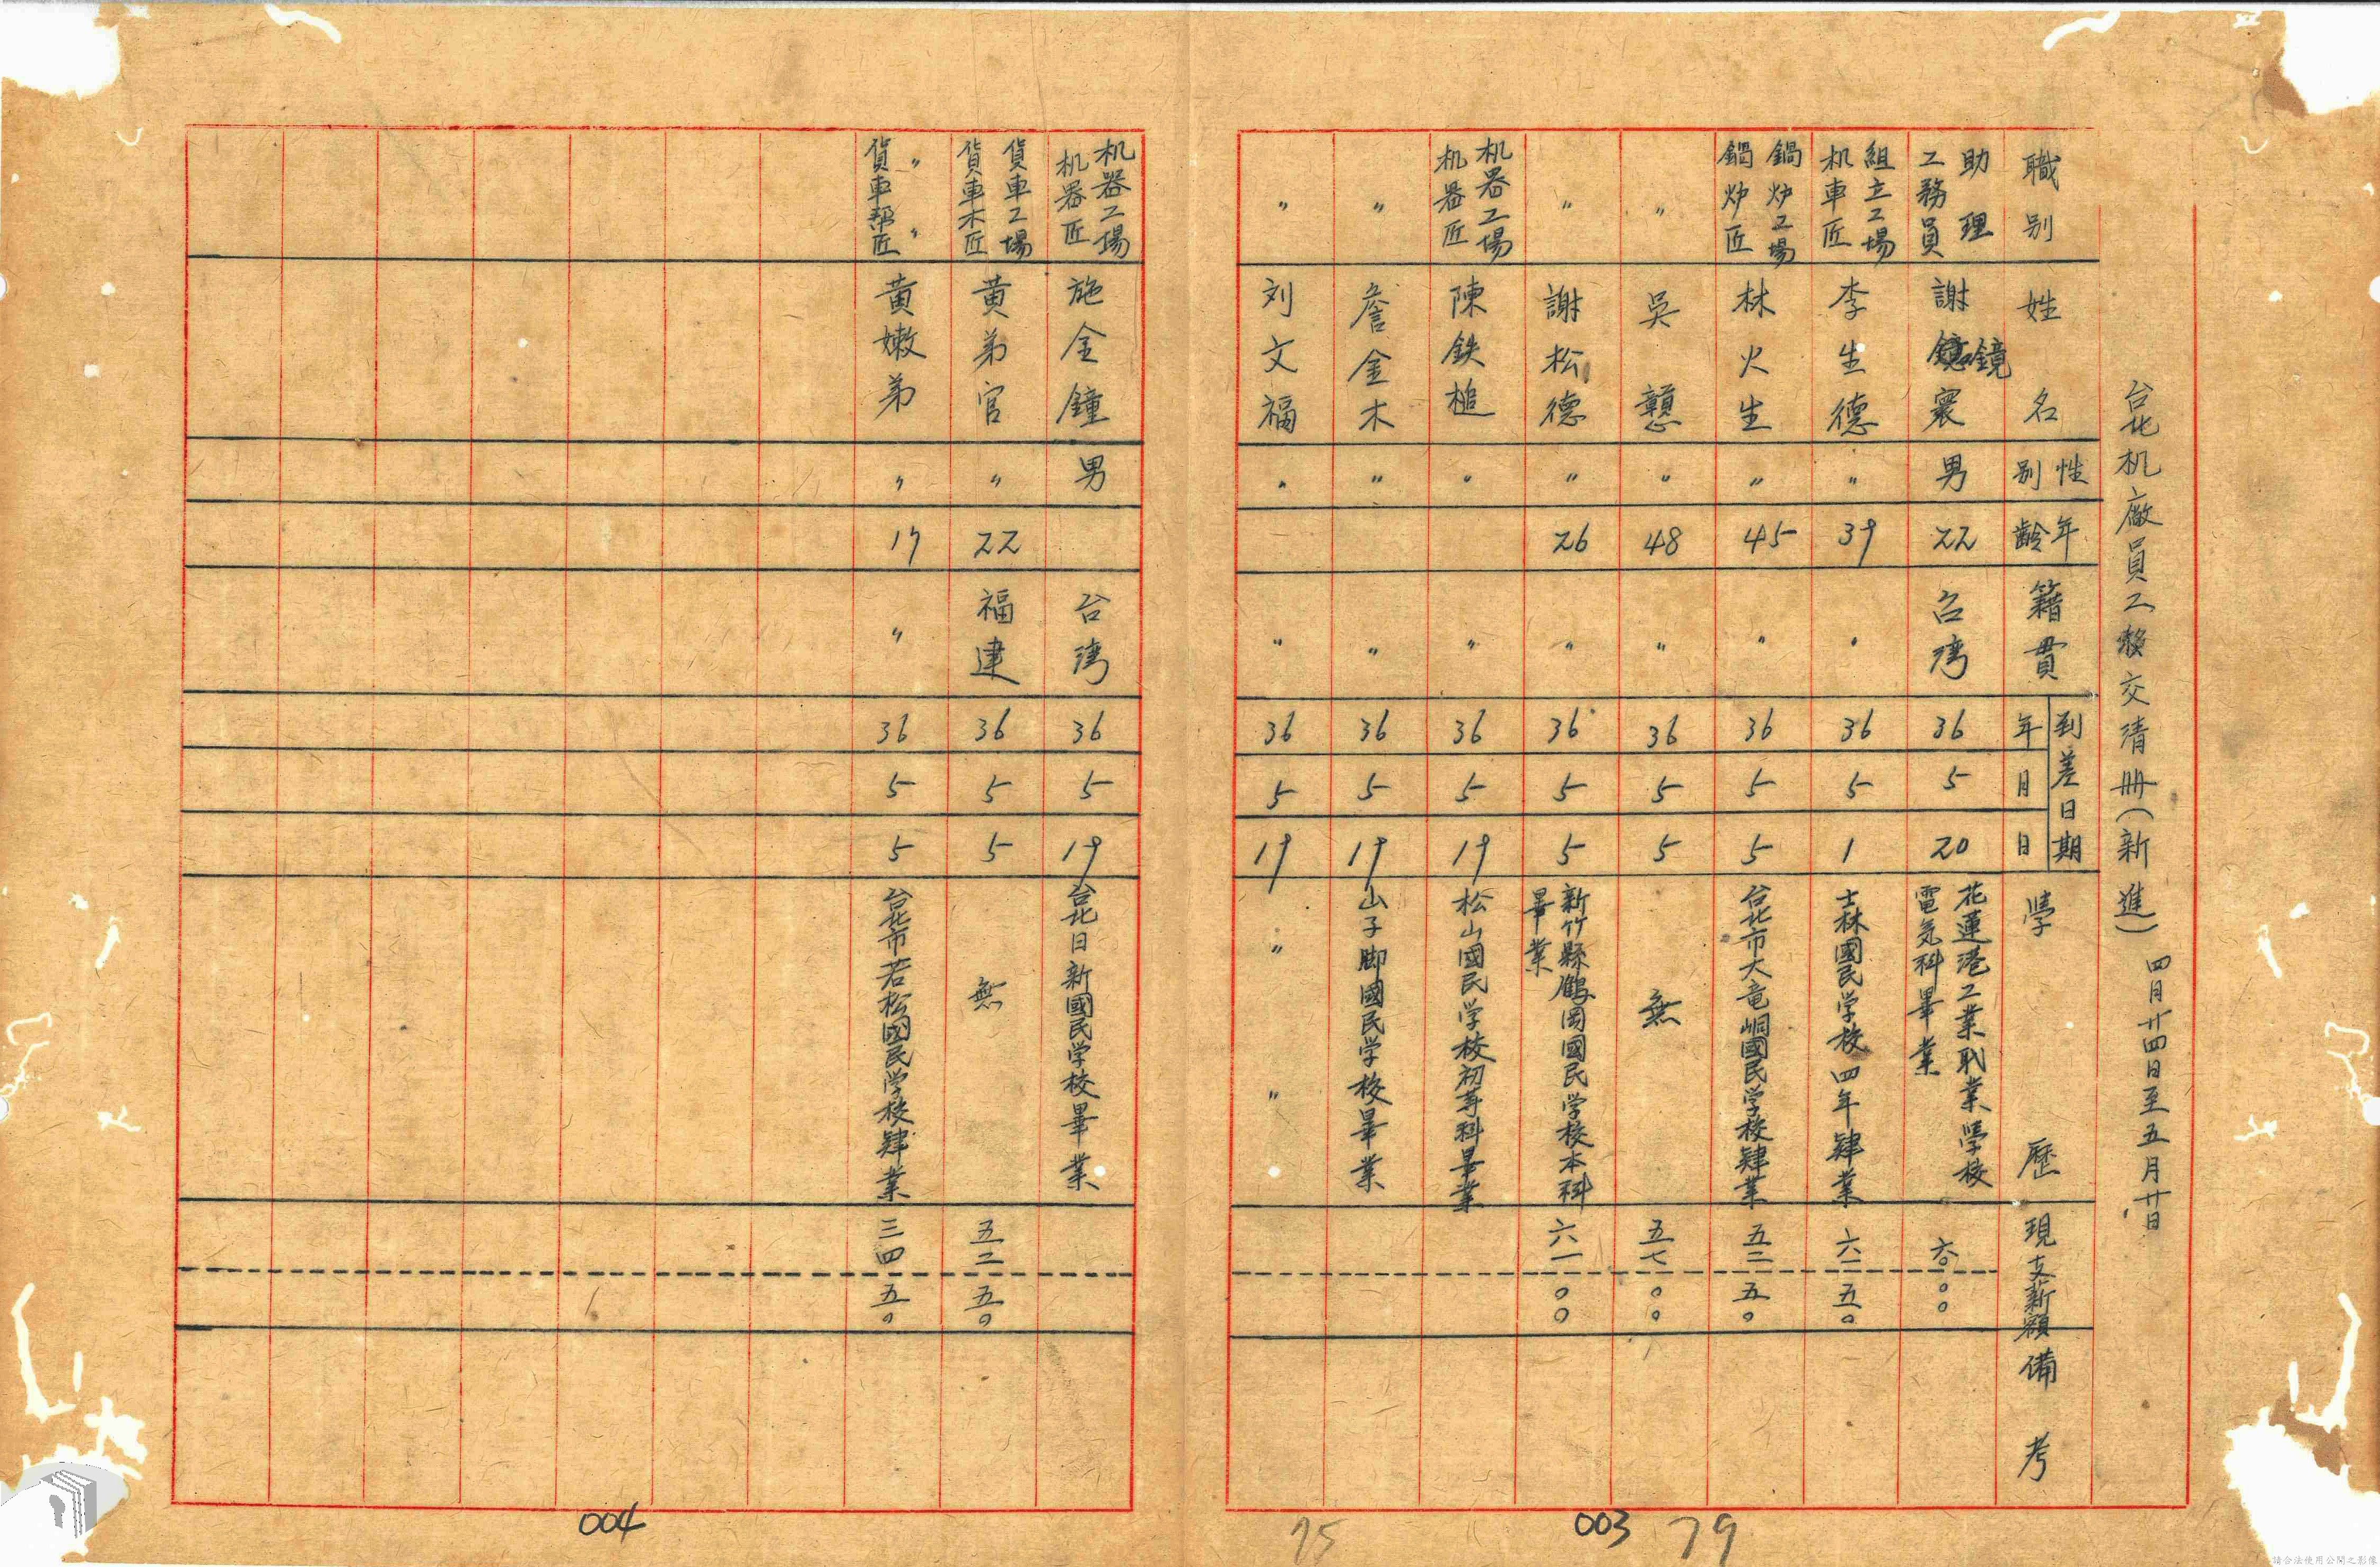 台北机廠員工移交清册(新進) 四月廿四日至五月廿日
職別
姓名
性別
年齡
籍貫
到差日期
年
月
日
學歷
現支薪額
備考
助理
工務員
謝鏡寰
鏡
男
22
台灣
36
5
20
花蓮港工業職業學校
電気科畢業
六〇
〇〇
組立工場
机車匠
李生德
〃
39
〃
36
5
1
士林國民学校四年肄業
六一
五〇
鍋炉工場
鍋炉匠
林火生
〃
45
〃
36
5
5
台北市大竜峒國民学校肄業
五二
五〇
〃
吳戇
〃
48
〃
36
5
5
無
五七
〇〇
〃
謝松德
〃
26
〃
36
5
5
新竹縣鶴岡國民学校本科
畢業
六一
〇〇
机器工場
机器匠
陳鉄槌
〃
〃
36
5
19
松山國民学校初等科畢業
〃
詹金木
〃
〃
36
5
19
山子脚國民学校畢業
〃
刘文福
〃
〃
36
5
19
〃 〃
003
79
75
机器工場
机器匠
施金鐘
男
台灣
36
5
19
台北日新國民学校畢業
貨車工場
貨車木匠
黃弟官
〃
22
福建
36
5
5
無
五二
五〇
〃 〃
貨車幇匠
黃嫩弟
〃
17
〃
36
5
5
台北市若松國民学校肄業
三四
五〇
004
請合法使用公開之影像